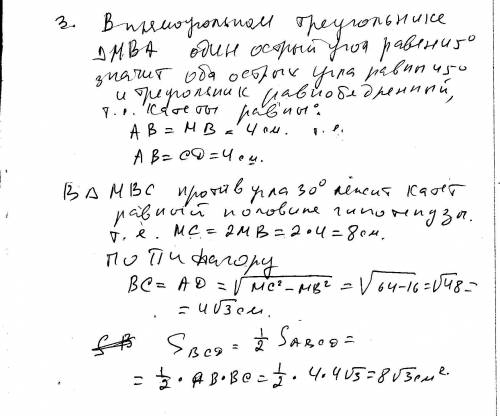 3. В прямоугольном треугольнике
ΔMBA один острый угол равен 45°
значит оба острых угла равны 45°
и треугольник равнобедренный,
т.е. катеты равны:
AB = MB = 4 см. т.е.
AB = CD = 4 см.
В Δ MBC против угла 30° лежит катет
равный половине гипотенузы.
т.е. MC = 2MB = 2·4 = 8 см.
По Пифагору
BC = AD = √MC² − MB² = √64−16 = √48 =
= 4√3 см.
S BCD = 1/2 S ABCD =
= 1/2 · AB · BC = 1/2 · 4 · 4√3 = 8√3 см².